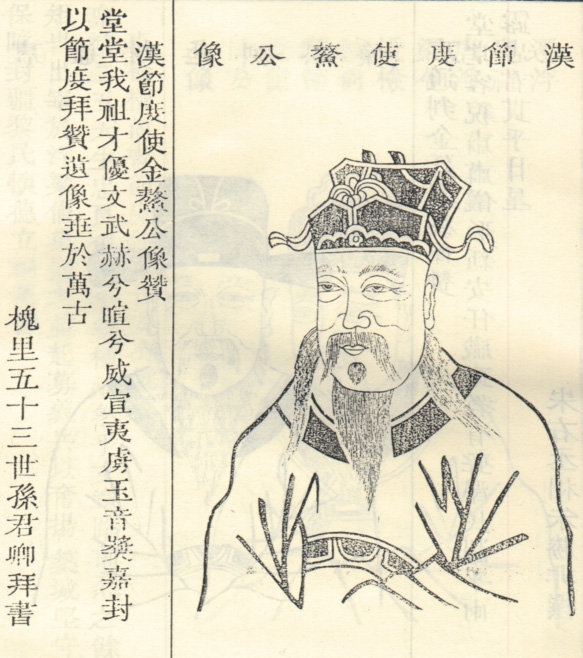 漢節度使鰲公像
漢節度使金鰲公像贊
堂堂我祖才優文武赫兮暄兮威宣夷虜玉音奬嘉封
以節度拜贊遺像垂於萬古
槐里五十三世孫君卿拜書